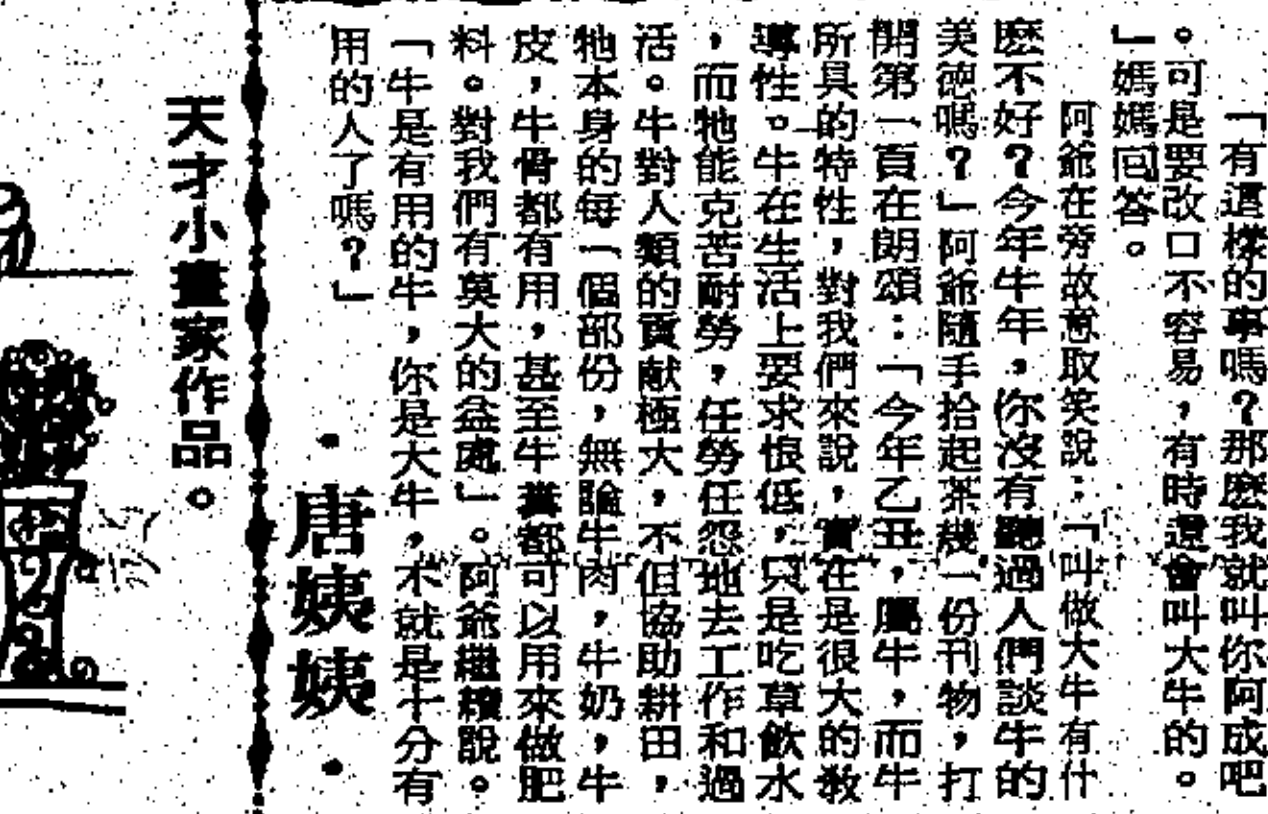 「有這樣的事嗎?那麽我就叫你阿成吧
。可是要改口不容易,有時還會叫大牛的。
」媽媽回答。
阿爺在旁故意取笑說:「叫做大牛有什
麽不好?今年牛年,你沒有聽過人們談牛的
美德嗎?」阿爺隨手拾起茶幾一份刊物,打
開第一頁在朗頌:「今年乙丑,屬牛,而牛
所具的特性,對我們來說,實在是很大的敎
導性。牛在生活上要求很低,只是吃草飲水
,而牠能克苦耐勞,任勞任怨地去工作和過
活。牛對人類的貢献極大,不但協助耕田,
牠本身的每一個部份,無論牛肉,牛奶,牛
皮,牛骨都有用,甚至牛糞都可以用來做肥
料。對我們有莫大的益處」。阿爺繼續說。
「牛是有用的牛,你是大牛,不就是十分有
用的人了嗎?」
·唐姨姨·
天才小畫家作品。